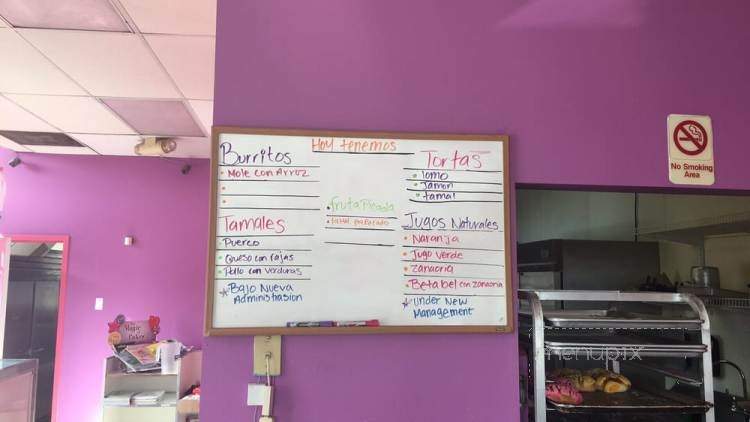 Hoy tenemos
Burritos
Mole con Arroz
Tamales
Puerco
Queso con rajas
Pollo con verduras
Bajo Nueva
Administrasion
fruta Picada
Tortas
lomo
Jamon
tamal
Jugos Naturales
Naranja
Jugo Verde
Zanaoria
Betabel con zanaoria
Under New
Management
No Smoking
Area
menupix